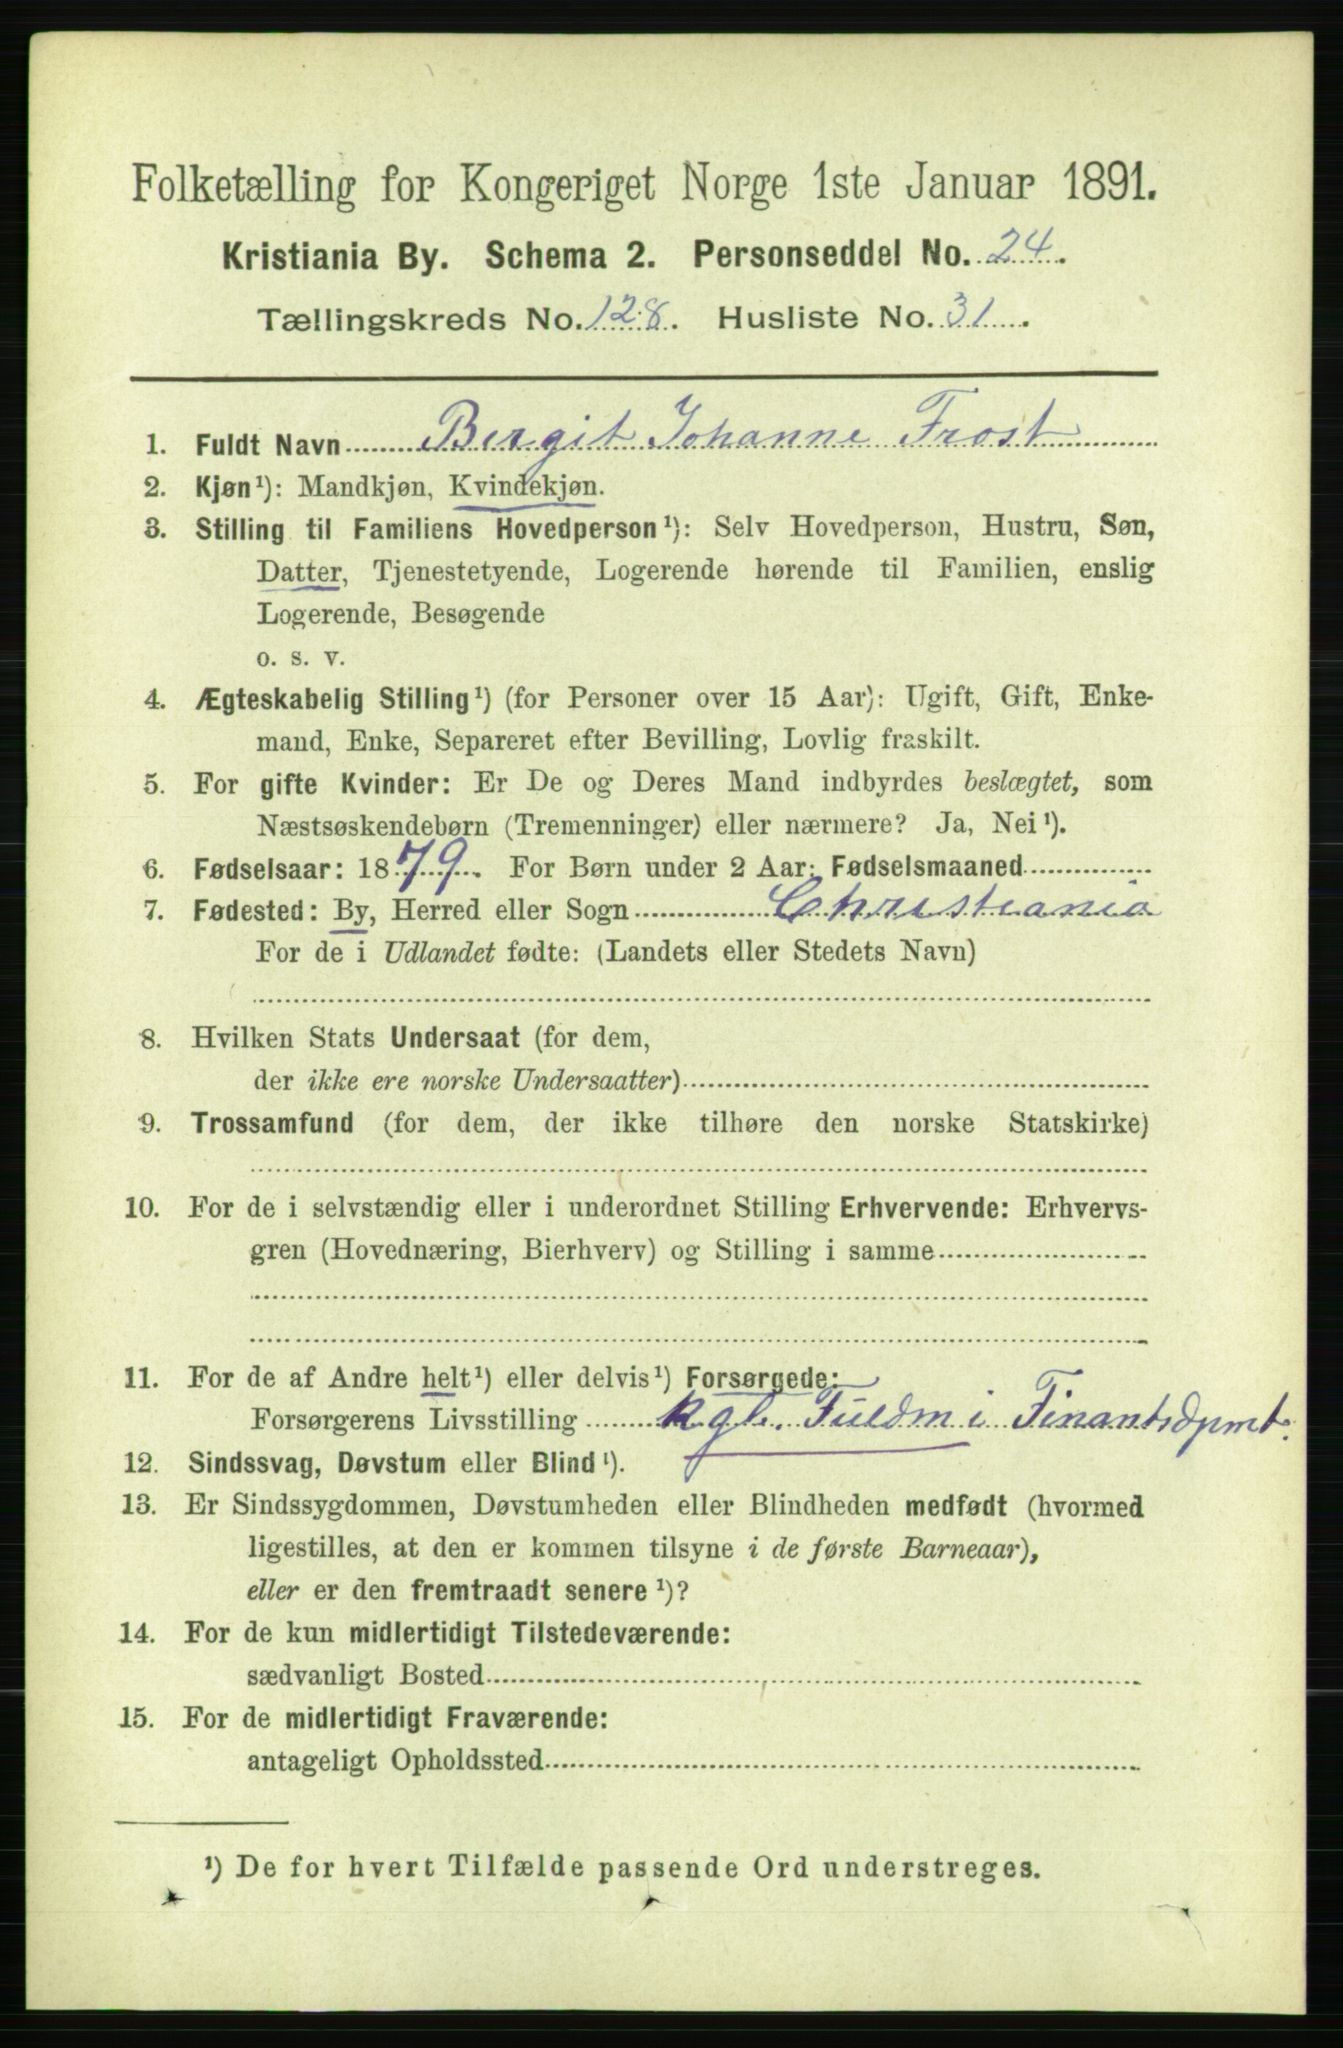 Folketælling for Kongeriget Norge 1ste Januar 1891.
Kristiania By. Schema 2. Personseddel No. 24.
Tællingskreds No. 128. Husliste No. 31.
1. Fuldt Navn Birgit Johanne Frost
2. Kjøn¹): Mandkjøn, Kvindekjøn.
3. Stilling til Familiens Hovedperson¹): Selv Hovedperson, Hustru, Søn,
Datter, Tjenestetyende, Logerende hørende til Familien, enslig
Logerende, Besøgende
o. s. v.
4. Ægteskabelig Stilling¹) (for Personer over 15 Aar): Ugift, Gift, Enke-
mand, Enke, Separeret efter Bevilling, Lovlig fraskilt.
5. For gifte Kvinder: Er De og Deres Mand indbyrdes beslægtet, som
Næstsøskendebørn (Tremenninger) eller nærmere? Ja, Nei¹).
6. Fødselsaar: 1879. For Børn under 2 Aar: Fødselsmaaned
7. Fødested: By, Herred eller Sogn Christiania
For de i Udlandet fødte: (Landets eller Stedets Navn)
8. Hvilken Stats Undersaat (for dem,
der ikke ere norske Undersaatter)
9. Trossamfund (for dem, der ikke tilhøre den norske Statskirke)
10. For de i selvstændig eller i underordnet Stilling Erhvervende: Erhvervs-
gren (Hovednæring, Bierhverv) og Stilling i samme
11. For de af Andre helt¹) eller delvis¹) Forsørgede:
Forsørgerens Livsstilling Kgl. Fuldm i Finantsdpmt.
12. Sindssvag, Døvstum eller Blind¹).
13. Er Sindssygdommen, Døvstumheden eller Blindheden medfødt (hvormed
ligestilles, at den er kommen tilsyne i de første Barneaar),
eller er den fremtraadt senere¹)?
14. For de kun midlertidigt Tilstedeværende:
sædvanligt Bosted
15. For de midlertidigt Fraværende:
antageligt Opholdssted
¹) De for hvert Tilfælde passende Ord understreges.